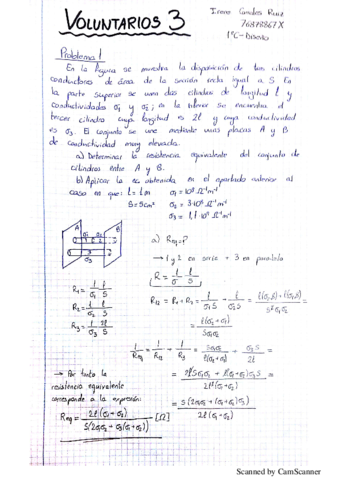 VOLUNTARIOS 3
Irene Canales Ruiz
76878867X
1ºC-Diseño
Problema 1
En la figura se muestra la disposición de tres cilindros
conductores de área de la sección recta igual a S. En
la parte superior se unen dos cilindros de longitud l y
conductividades σ1 y σ2; en la inferior se encuentra el
tercer cilindro cuya longitud es 2l y cuya conductividad
es σ3. El conjunto se une mediante unas placas A y B
de conductividad muy elevada.
a) Determinar la resistencia equivalente del conjunto de
cilindros entre A y B.
b) Aplicar la obtenida en el apartado anterior al
caso en que: l = 1m
S = 5cm²
σ2 = 3·10⁵ Ω⁻¹m⁻¹
A B
σ1 σ2
σ3
a) Req = ?
→ 1 y 2 en serie + 3 en paralelo
R = 1/σ l/S
R1 = 1/σ1 l/S
R2 = 1/σ2 l/S
R3 = 1/σ3 2l/S
R12 = R1 + R2 = l/σ1S + l/σ2S =
= l(σ2+σ1)/Sσ1σ2
1/Req = 1/R12 + 1/R3 = Sσ1σ2/l(σ1+σ2) + σ3S/2l =
= 2lSσ1σ2 + l(σ1+σ2)σ3S / 2l²(σ1+σ2) =
= S(2σ1σ2 + (σ1+σ2)σ3) / 2l(σ1+σ2)
→ Por tanto la
resistencia equivalente
corresponde a la expresión:
Req = 2l(σ1+σ2) / S(2σ1σ2 + σ3(σ1+σ2)) [Ω]
Scanned by CamScanner